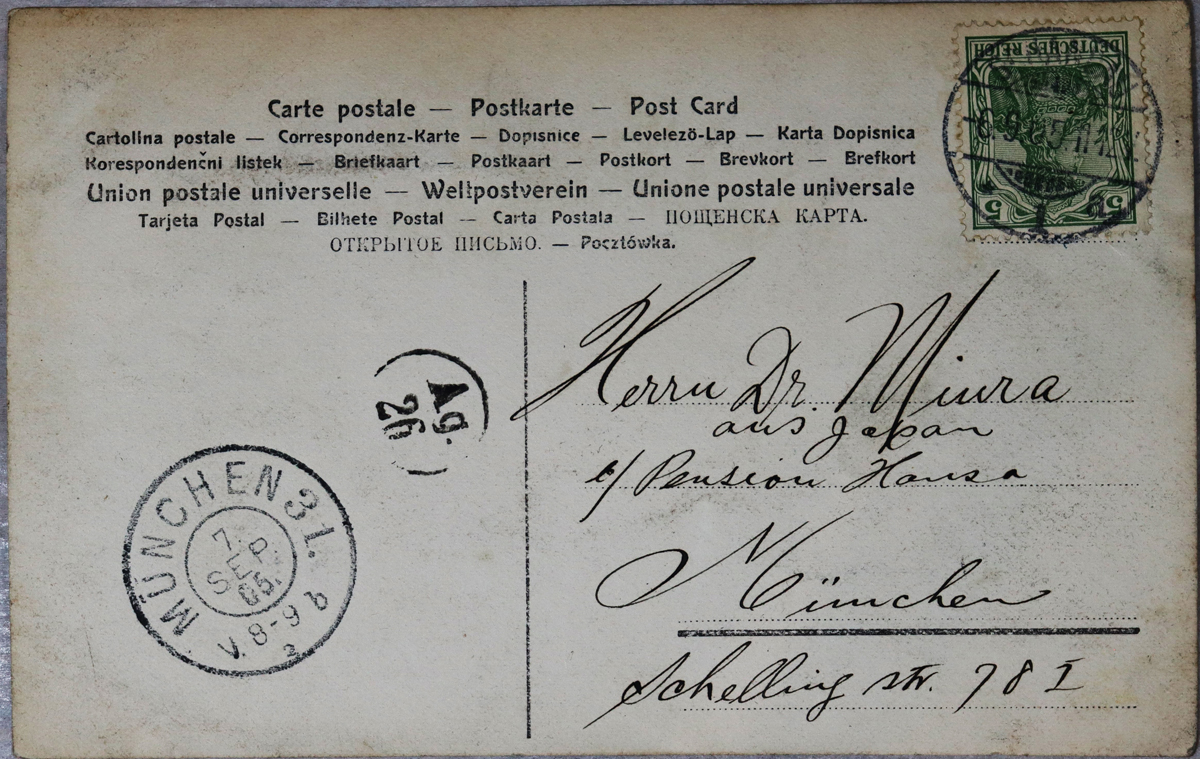 Carte postale — Postkarte — Post Card
Cartolina postale — Correspondenz-Karte — Dopisnice — Levelező-Lap — Karta Dopisnica
Korespondenční listek — Briefkaart — Postkaart — Postkort — Brevkort — Brefkort
Union postale universelle — Weltpostverein — Unione postale universale
Tarjeta Postal — Bilhete Postal — Carta Postala — ПОЩЕНСКА КАРТА.
ОТКРЫТОЕ ПИСЬМО. — Pocztówka.
DEUTSCHES REICH
5 5
Herrn Dr. Miura
aus Japan
c/ Pension Hansa
München
Schelling str. 78 I
A9.
26
MÜNCHEN 31.
7.
SEP.
05.
V. 8-9 b